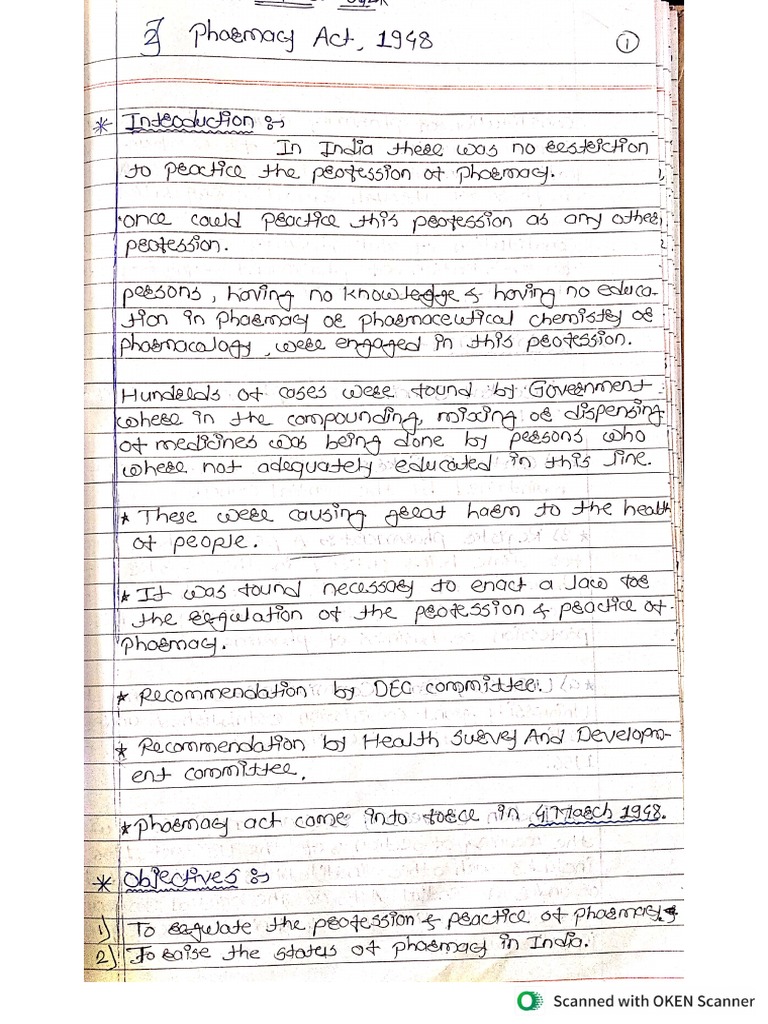 2) Pharmacy Act, 1948
1
* Introduction :-
In India there was no restriction
to practice the profession of pharmacy.
once could practice this profession as any other
profession.
persons, having no knowledge & having no educa-
tion in pharmacy or pharmaceutical chemistry or
pharmacology, were engaged in this profession.
Hundelds of cases were found by Government
where in the compounding, mixing or dispensing
of medicines was being done by persons who
where not adequately educated in this line.
* These were causing great harm to the health
of people.
* It was found necessary to enact a law for
the regulation of the profession & practice of
pharmacy.
* Recommendation by DEC committee.
* Recommendation by Health Survey And Developm-
ent committee.
* Pharmacy act come into force in 4 March 1948.
* Objectives :-
1) To regulate the profession & practice of pharmacy.
2) To raise the status of pharmacy in India.
Scanned with OKEN Scanner